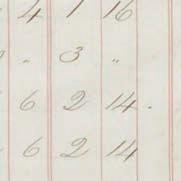 4 1 16
" 3 "
6 2 14 .
6 2 14